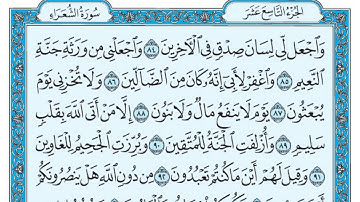 الجزء التاسع عشر
سورة الشعراء
وَاجْعَل لِّي لِسَانَ صِدْقٍ فِي الْآخِرِينَ ٨٤ وَاجْعَلْنِي مِن وَرَثَةِ جَنَّةِ
النَّعِيمِ ٨٥ وَاغْفِرْ لِأَبِي إِنَّهُ كَانَ مِنَ الضَّالِّينَ ٨٦ وَلَا تُخْزِنِي يَوْمَ
يُبْعَثُونَ ٨٧ يَوْمَ لَا يَنفَعُ مَالٌ وَلَا بَنُونَ ٨٨ إِلَّا مَنْ أَتَى اللَّهَ بِقَلْبٍ
سَلِيمٍ ٨٩ وَأُزْلِفَتِ الْجَنَّةُ لِلْمُتَّقِينَ ٩٠ وَبُرِّزَتِ الْجَحِيمُ لِلْغَاوِينَ
٩١ وَقِيلَ لَهُمْ أَيْنَ مَا كُنتُمْ تَعْبُدُونَ ٩٢ مِن دُونِ اللَّهِ هَلْ يَنصُرُونَكُمْ